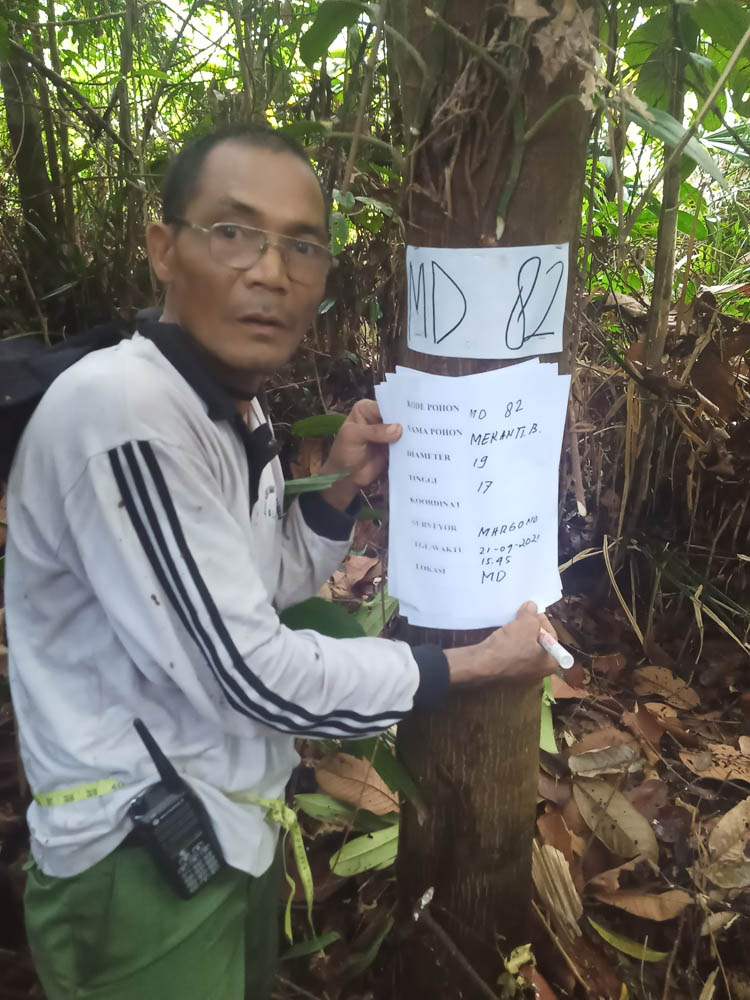 MD 82
KODE POHON MD 82
NAMA POHON MERANTI.B.
DIAMETER 19
TINGGI 17
KOORDINAT
SURVEYOR MARGONO
TGL/WAKTU 21-09-2021
15.45
LOKASI MD